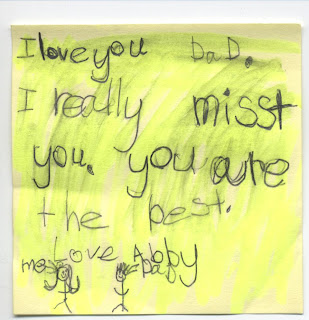 I love you DaD.
I really misst
you. you are
the best.
Love Abby
me DaD